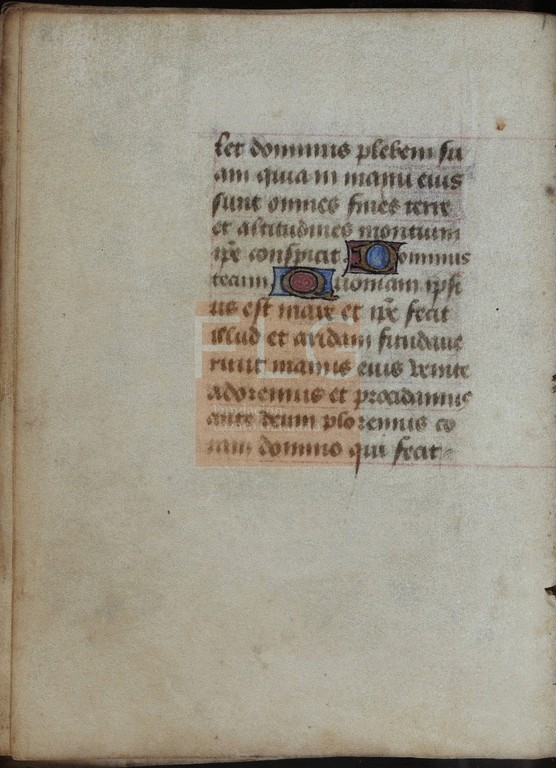 let dominus plebem su
am quia in manu eius
sunt omnes fines terre
et altitudines montium
ip̄e conspicit Dominus
tecum Quoniam ipsi
us est mare et ip̄e fecit
illud et aridam fundaue
runt manus eius venite
adoremus et procidamus
ante deum ploremus co
ram domino qui fecit
FLG